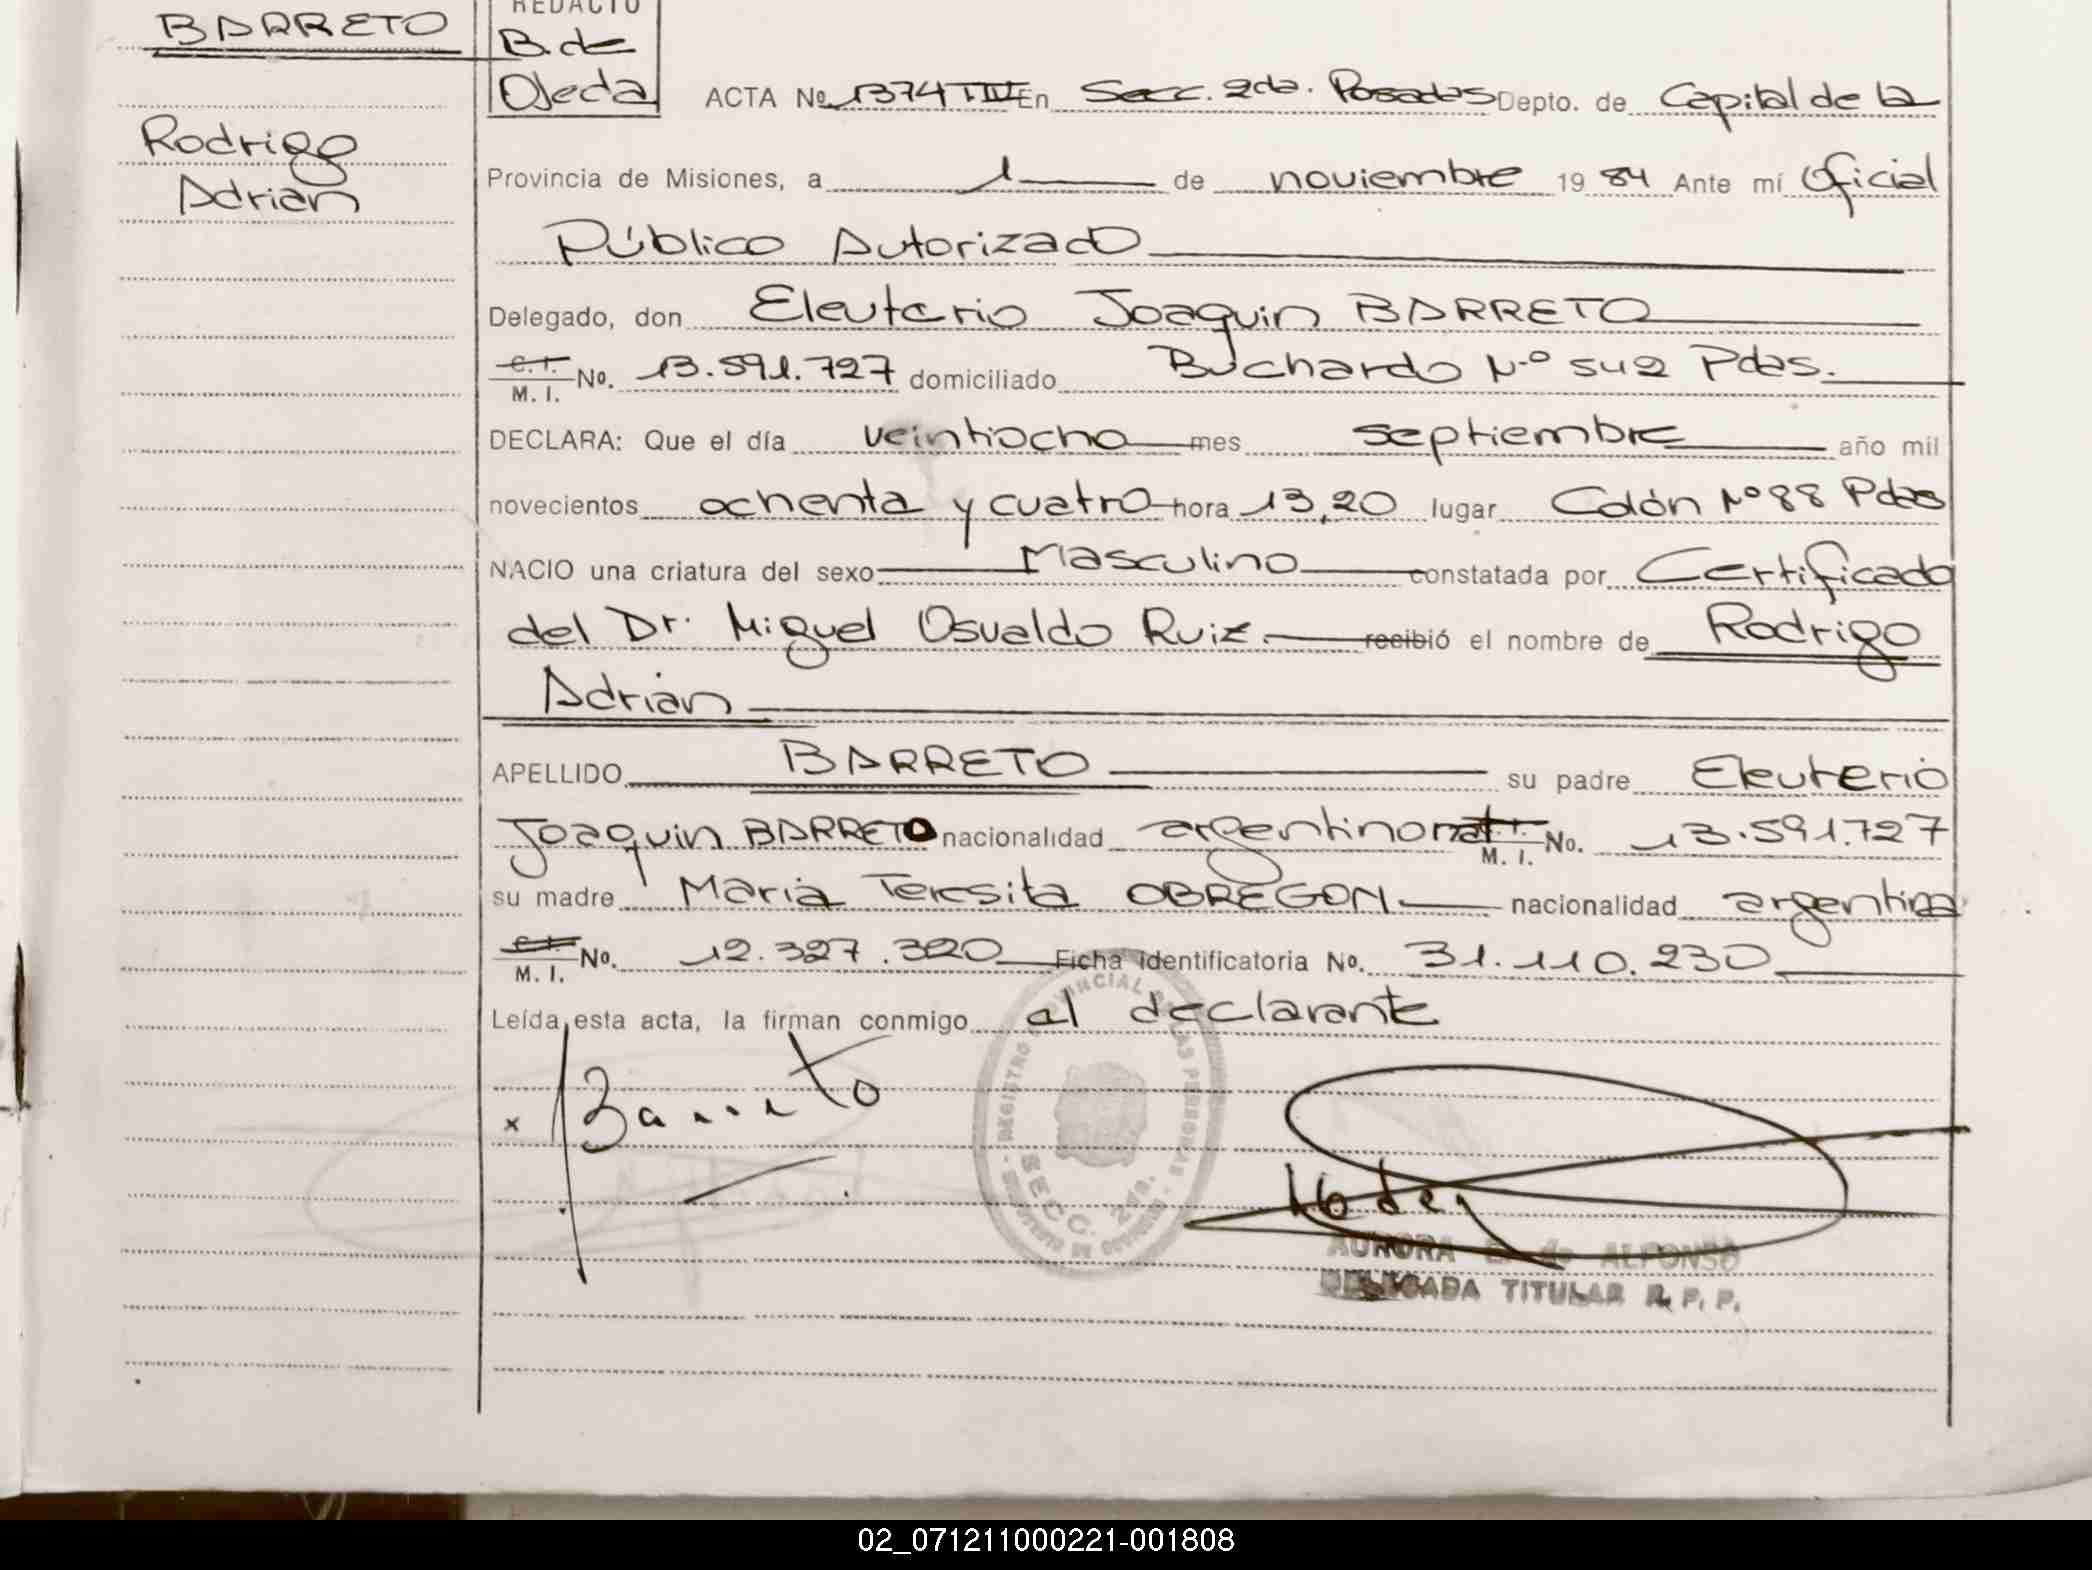 BARRETO
REDACTO
B. de
Ojeda
Rodrigo
Adrian
ACTA No 1374 T III En Secc. 2da. Posadas Depto. de Capital de la
Provincia de Misiones, a 1 de noviembre 19 84 Ante mí Oficial
Público Autorizado
Delegado, don Eleuterio Joaquin BARRETO
C. I. M. I. No. 13.591.727 domiciliado Buchardo N.º 542 Pdas.
DECLARA: Que el día veintiocho mes septiembre año mil
novecientos ochenta y cuatro hora 13,20 lugar Colón Nº 88 Pdas
NACIO una criatura del sexo Masculino constatada por Certificado
del Dr. Miguel Osvaldo Ruiz. recibió el nombre de Rodrigo
Adrián
APELLIDO BARRETO su padre Eleuterio
Joaquin BARRETO nacionalidad argentino nat M. I. No. 13.591.727
su madre Maria Teresita OBREGON nacionalidad argentina
C. I. M. I. No. 12.327.320 Ficha identificatoria No. 31.110.230
Leída esta acta, la firman conmigo al declarante
x Barreto
REGISTRO PROVINCIAL DE LAS PERSONAS
SECC. 2da.
AURORA de ALFONSO
DELEGADA TITULAR R. P. P.
02_071211000221-001808